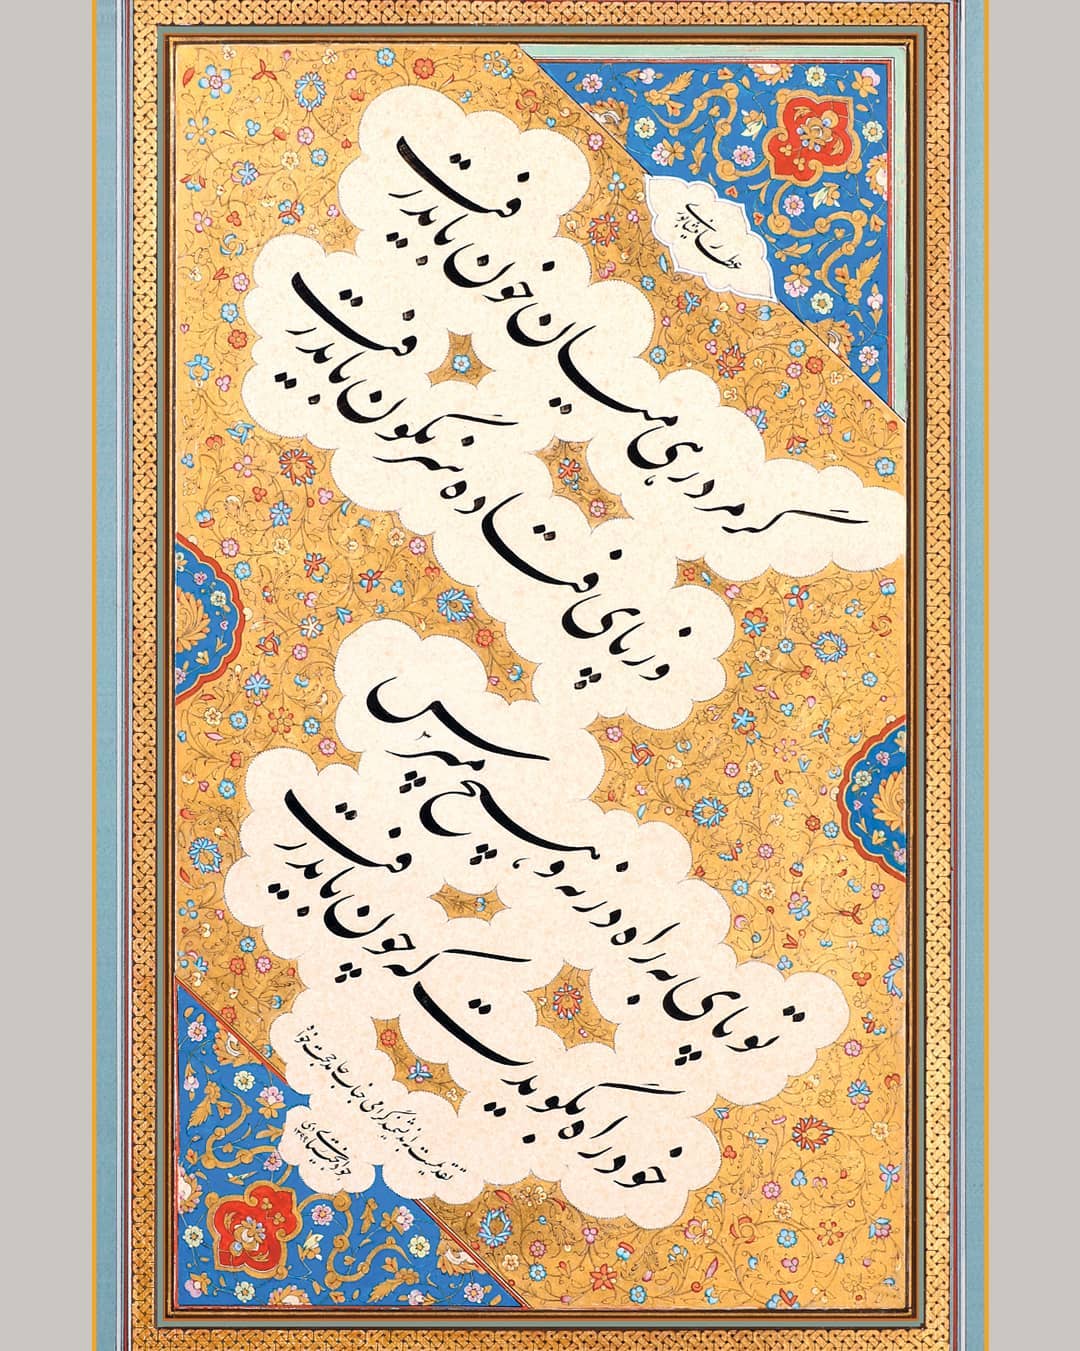 عطار نیشابوری
گر مرد رهی میان خون باید رفت
وز پای فتاده سرنگون باید رفت
تو پای به راه در نه و هیچ مپرس
خود راه بگویدت که چون باید رفت
گرامی جناب
جواد بختیاری